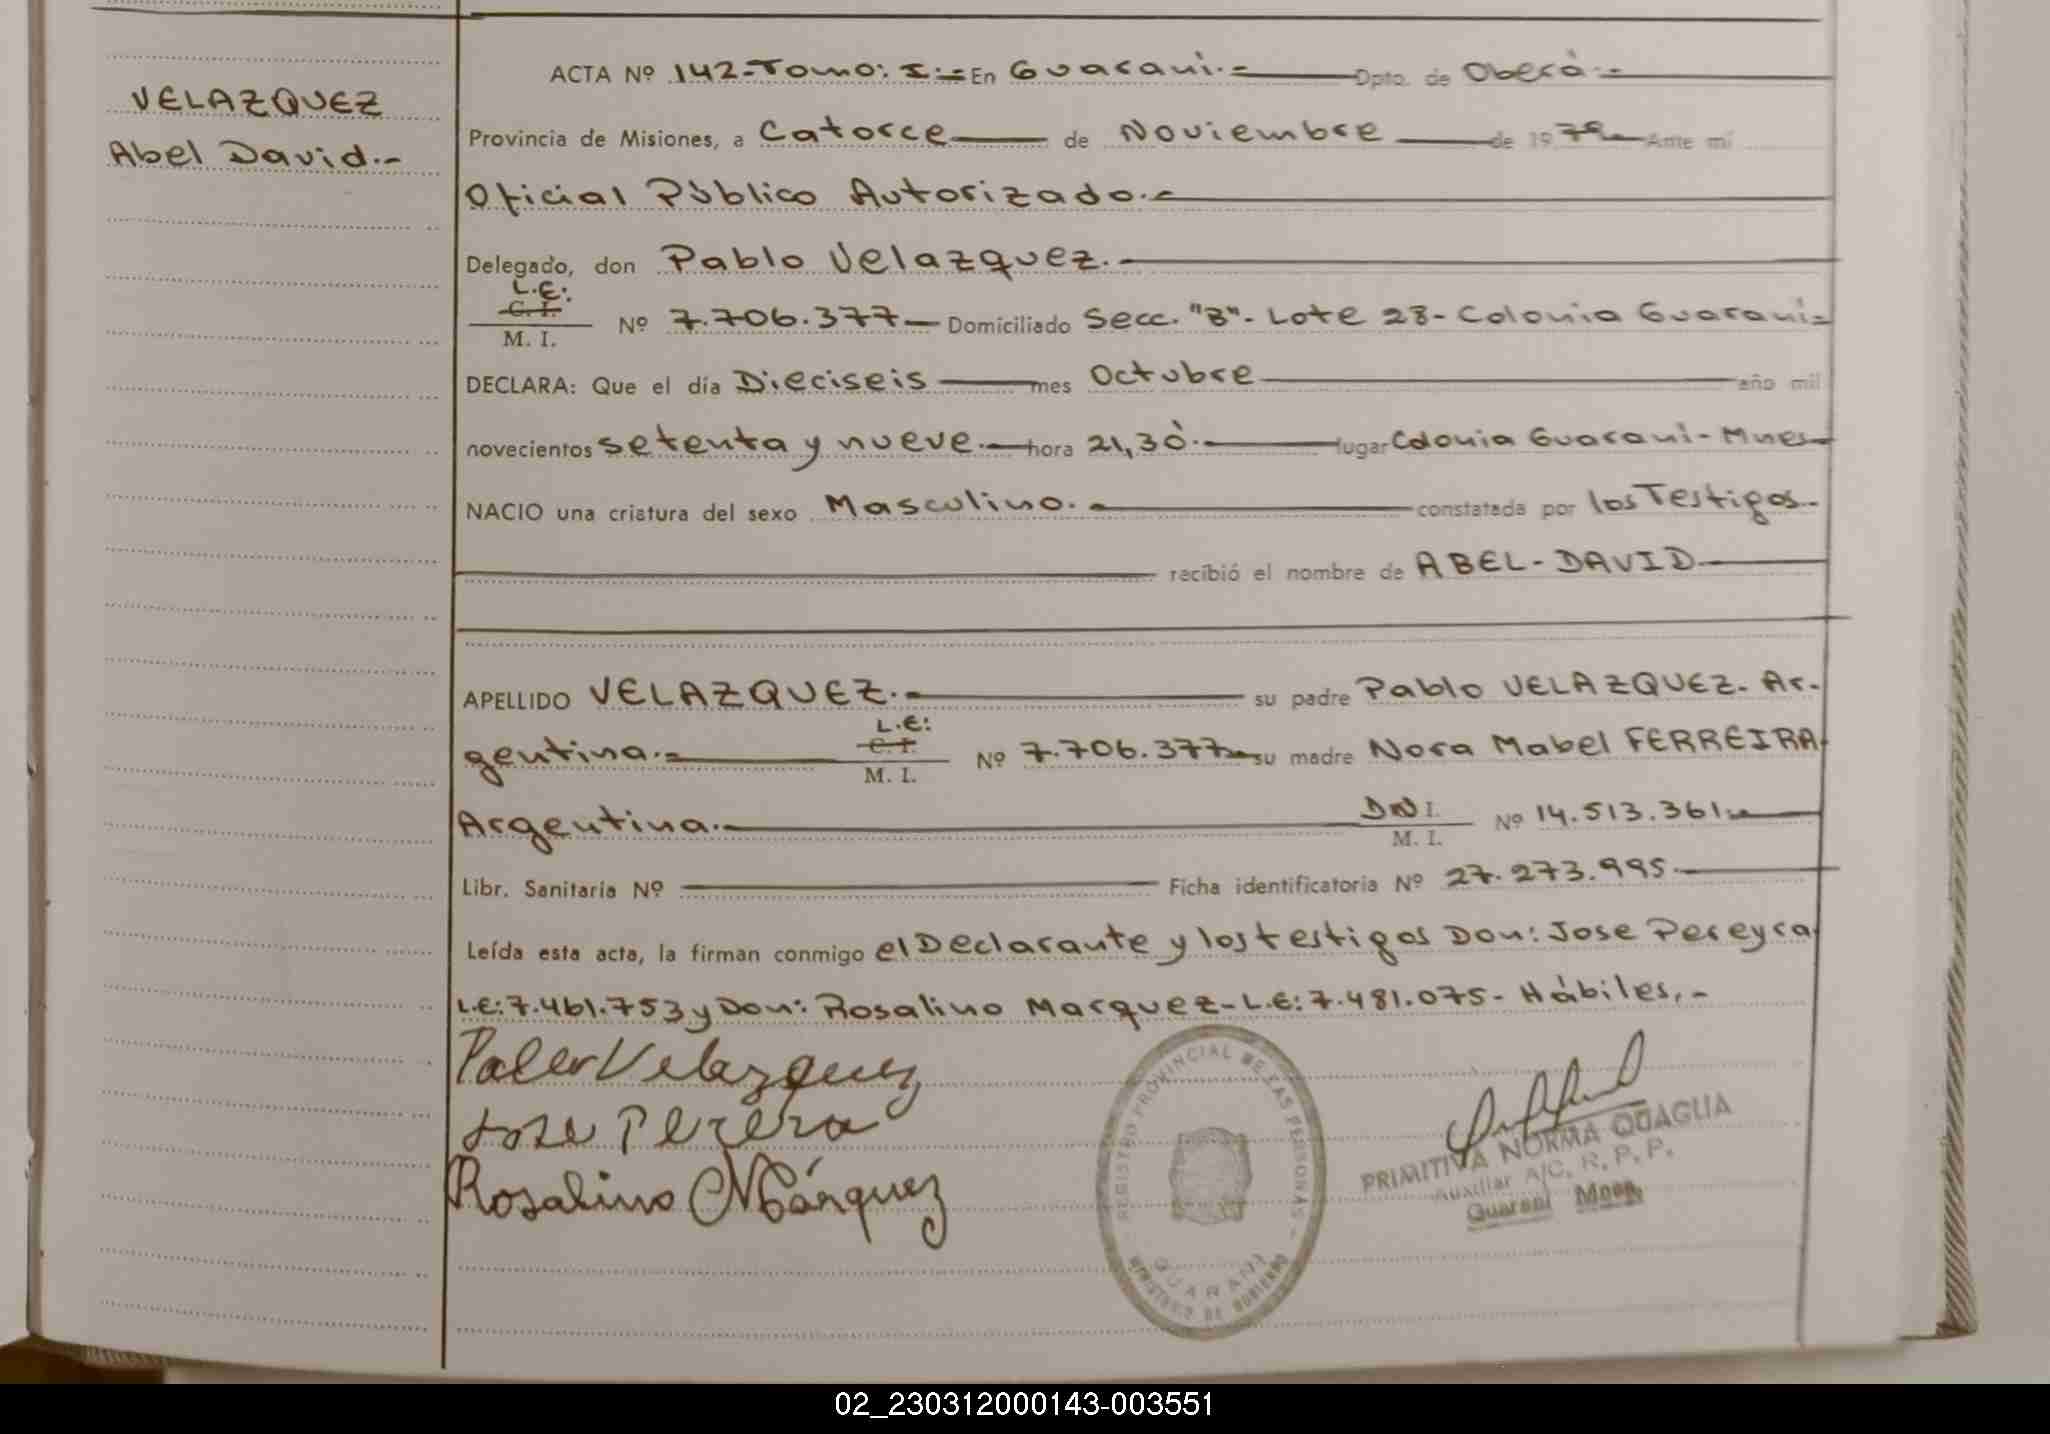 VELAZQUEZ
Abel David.-
ACTA Nº 142-Tomo: I:- En Guarani.- Dpto. de Oberà.-
Provincia de Misiones, a Catorce de Noviembre de 1979 Ante mí
Oficial Público Autorizado.-
Delegado, don Pablo Velazquez.-
L.E:
C. I.
M. I. Nº 7.706.377- Domiciliado Secc. "B"- Lote 28- Colonia Guarani-
DECLARA: Que el día Dieciseis mes Octubre año mil
novecientos setenta y nueve.- hora 21,30.- lugar Colonia Guarani- Mnes-
NACIO una criatura del sexo Masculino.- constatada por los Testigos.-
recibió el nombre de ABEL-DAVID
APELLIDO VELAZQUEZ.- su padre Pablo VELAZQUEZ- Ar-
L.E:
C. I.
gentina.- M. I. Nº 7.706.377- su madre Nora Mabel FERREIRA
Argentina.- DNI. M. I. Nº 14.513.361.-
Libr. Sanitaria Nº Ficha identificatoria Nº 27.273.995.-
Leída esta acta, la firman conmigo el Declarante y los testigos Don: Jose Pereyra
L.E:7.461.753 y Don: Rosalino Marquez- L.E:7.481.075- Hábiles.-
Velazquez
Jose Perera
Rosalino Márquez
REGISTRO PROVINCIAL DE LAS PERSONAS
GUARANI
MINISTERIO DE GOBIERNO
PRIMITIVA NORMA QUAGLIA
Auxiliar A/C. R. P. P.
Guarani Mnes.
02_230312000143-003551